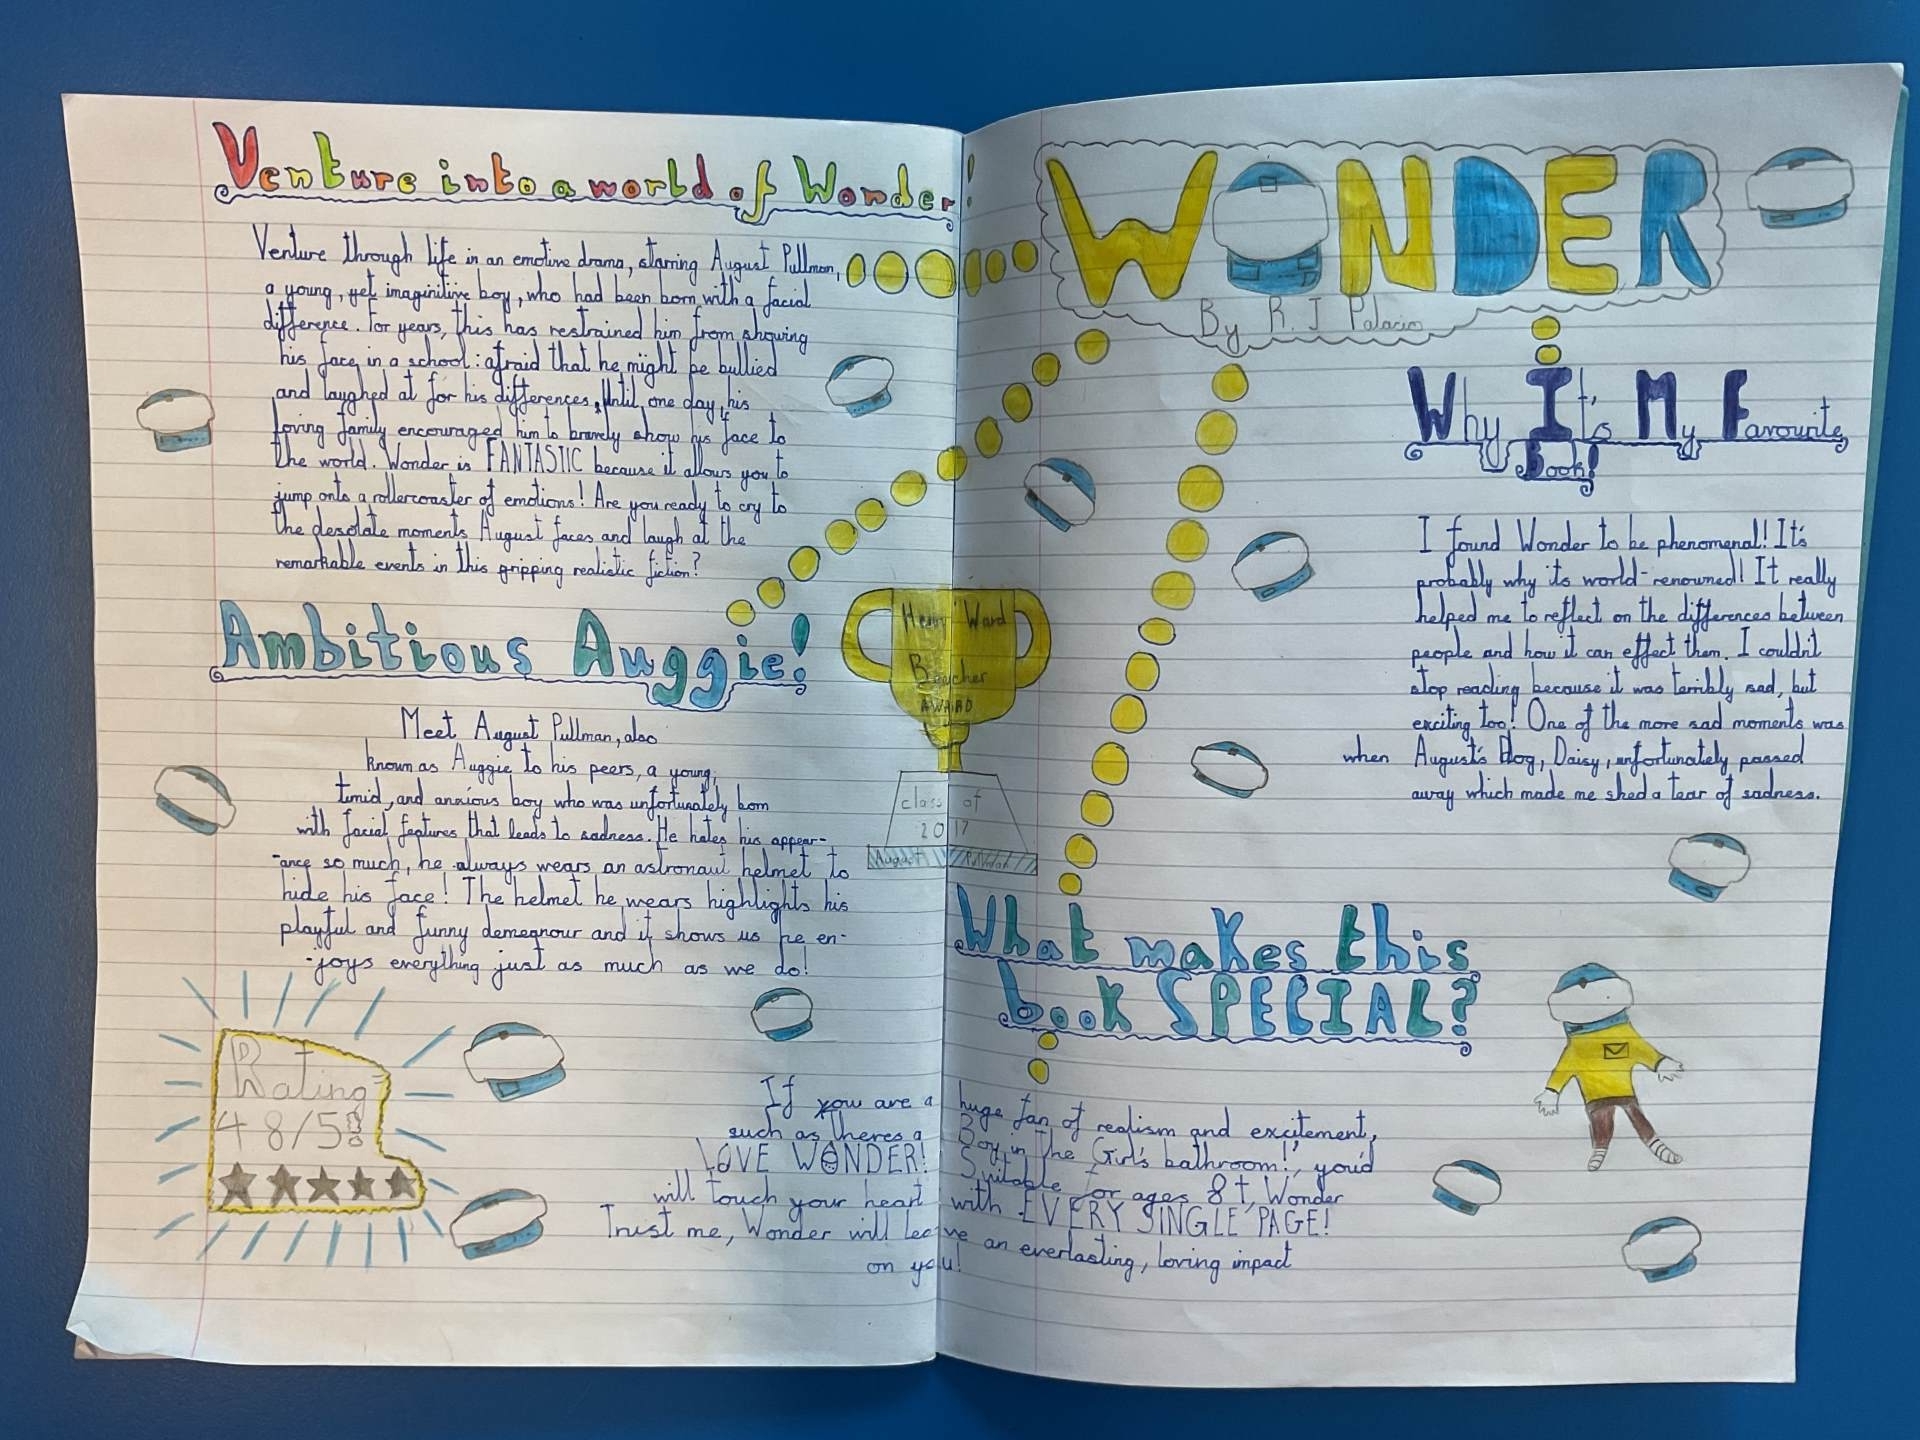 Venture into a world of Wonder!
Venture through life in an emotive drama, starring August Pullman,
a young, yet imaginitive boy, who had been born with a facial
difference. For years, this has restrained him from showing
his face in a school: afraid that he might be bullied
and laughed at for his differences. Until, one day, his
loving family encouraged him to bravely show his face to
the world. Wonder is FANTASTIC because it allows you to
jump onto a rollercoaster of emotions! Are you ready to cry to
the desolate moments August faces and laugh at the
remarkable events in this gripping realistic fiction?
Ambitious Auggie!
Meet August Pullman, also
known as Auggie to his peers, a young,
timid, and anxious boy who was unfortunately born
with facial features that leads to sadness. He hates his appear-
-ance so much, he always wears an astronaut helmet to
hide his face! The helmet he wears highlights his
playful and funny demeanour and it shows us he en-
-joys everything just as much as we do!
Rating
4 8/5
Henry Ward
Beecher
AWARD
class of
2017
August Pullman
WONDER
By R.J Palacio
Why It's My Favourite
Book!
I found Wonder to be phenomenal! It's
probably why its world-renowned! It really
helped me to reflect on the differences between
people and how it can effect them. I couldn't
stop reading because it was terribly sad, but
exciting too! One of the more sad moments was
when August's Dog, Daisy, unfortunately passed
away which made me shed a tear of sadness.
What makes this
book SPECIAL?
If you are a huge fan of realism and excitement,
such as theres a Boy in the Girl's bathroom!, you'd
LOVE WONDER! Suitable for ages 8+, Wonder
will touch your heart with EVERY SINGLE PAGE!
Trust me, Wonder will leave an everlasting, loving impact
on you!